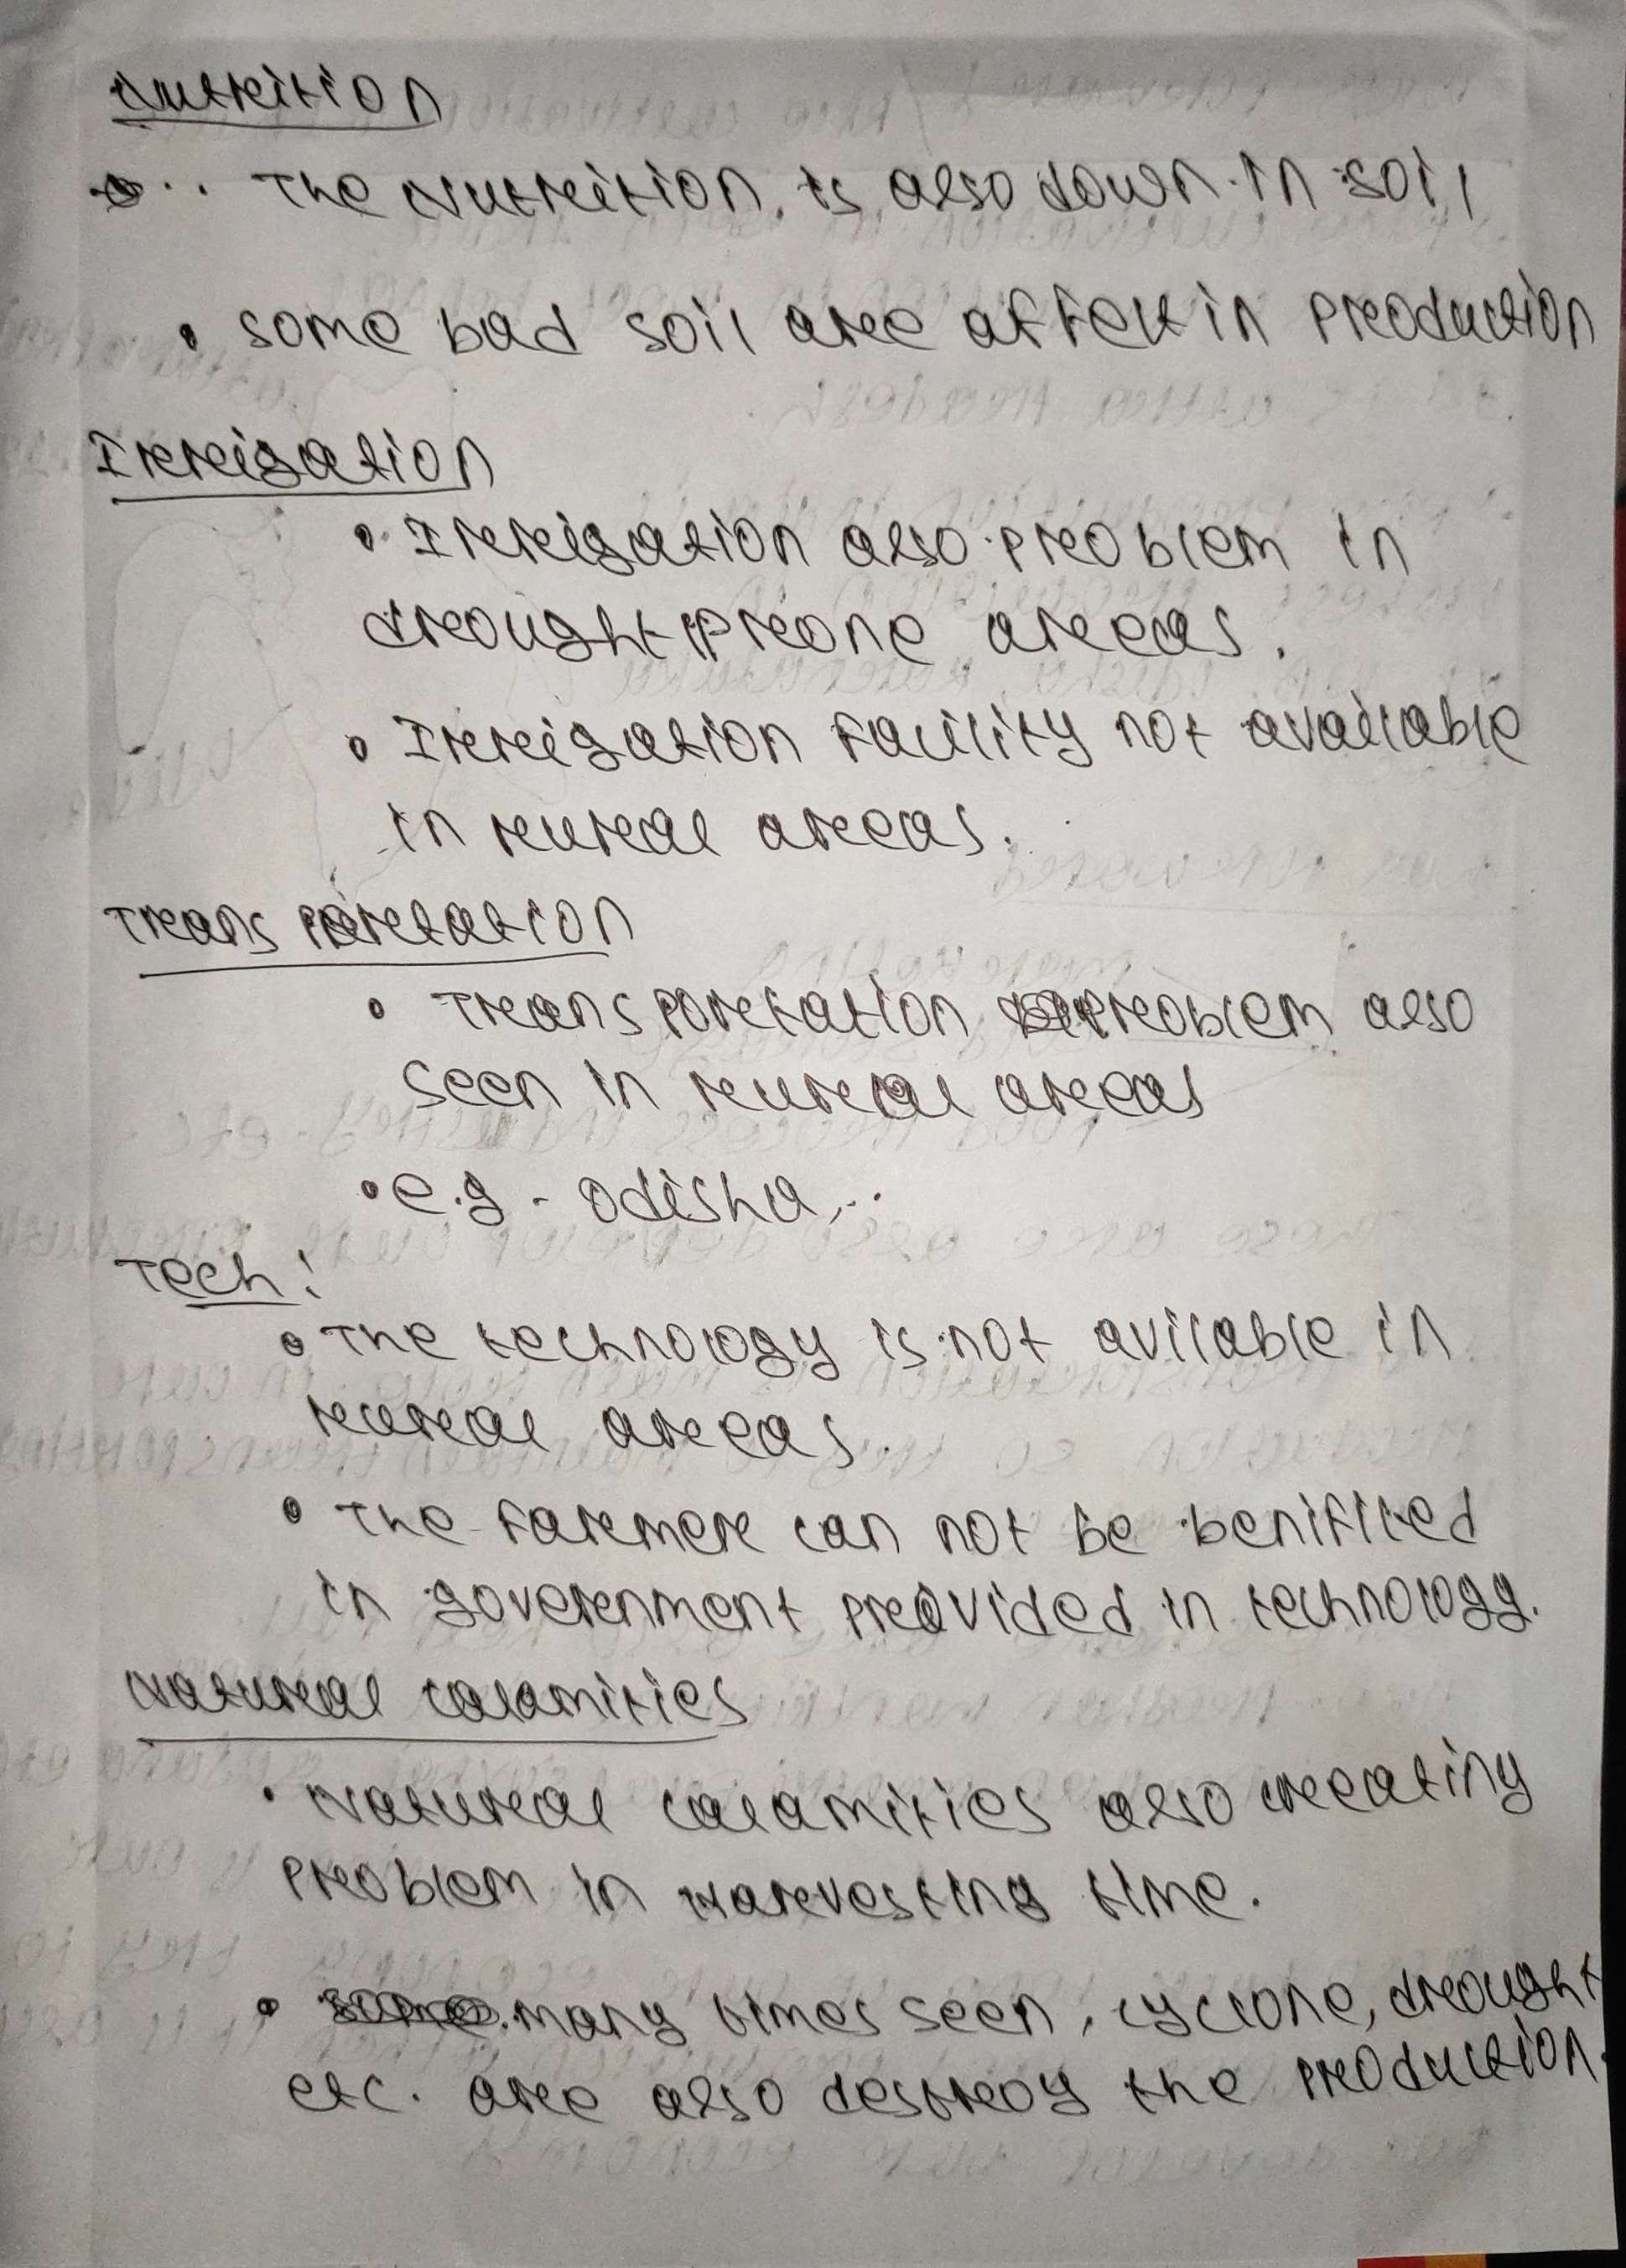 Nutrition
The Nutrition is also down in soil
• some bad soil are affect in production
Irrigation
• Irrigation also problem in
drought prone areas.
• Irrigation facility not available
in rural areas.
Transportation
• Transportation problem also
seen in rural areas
• e.g - Odisha
Tech:
• The technology is not avilable in
rural areas.
• The farmer can not be benifited
in government provided in technology.
Natural calamities
• Natural calamities also creating
problem in Harvesting time.
• many times seen, cyclone, drought
etc. are also destroy the production.